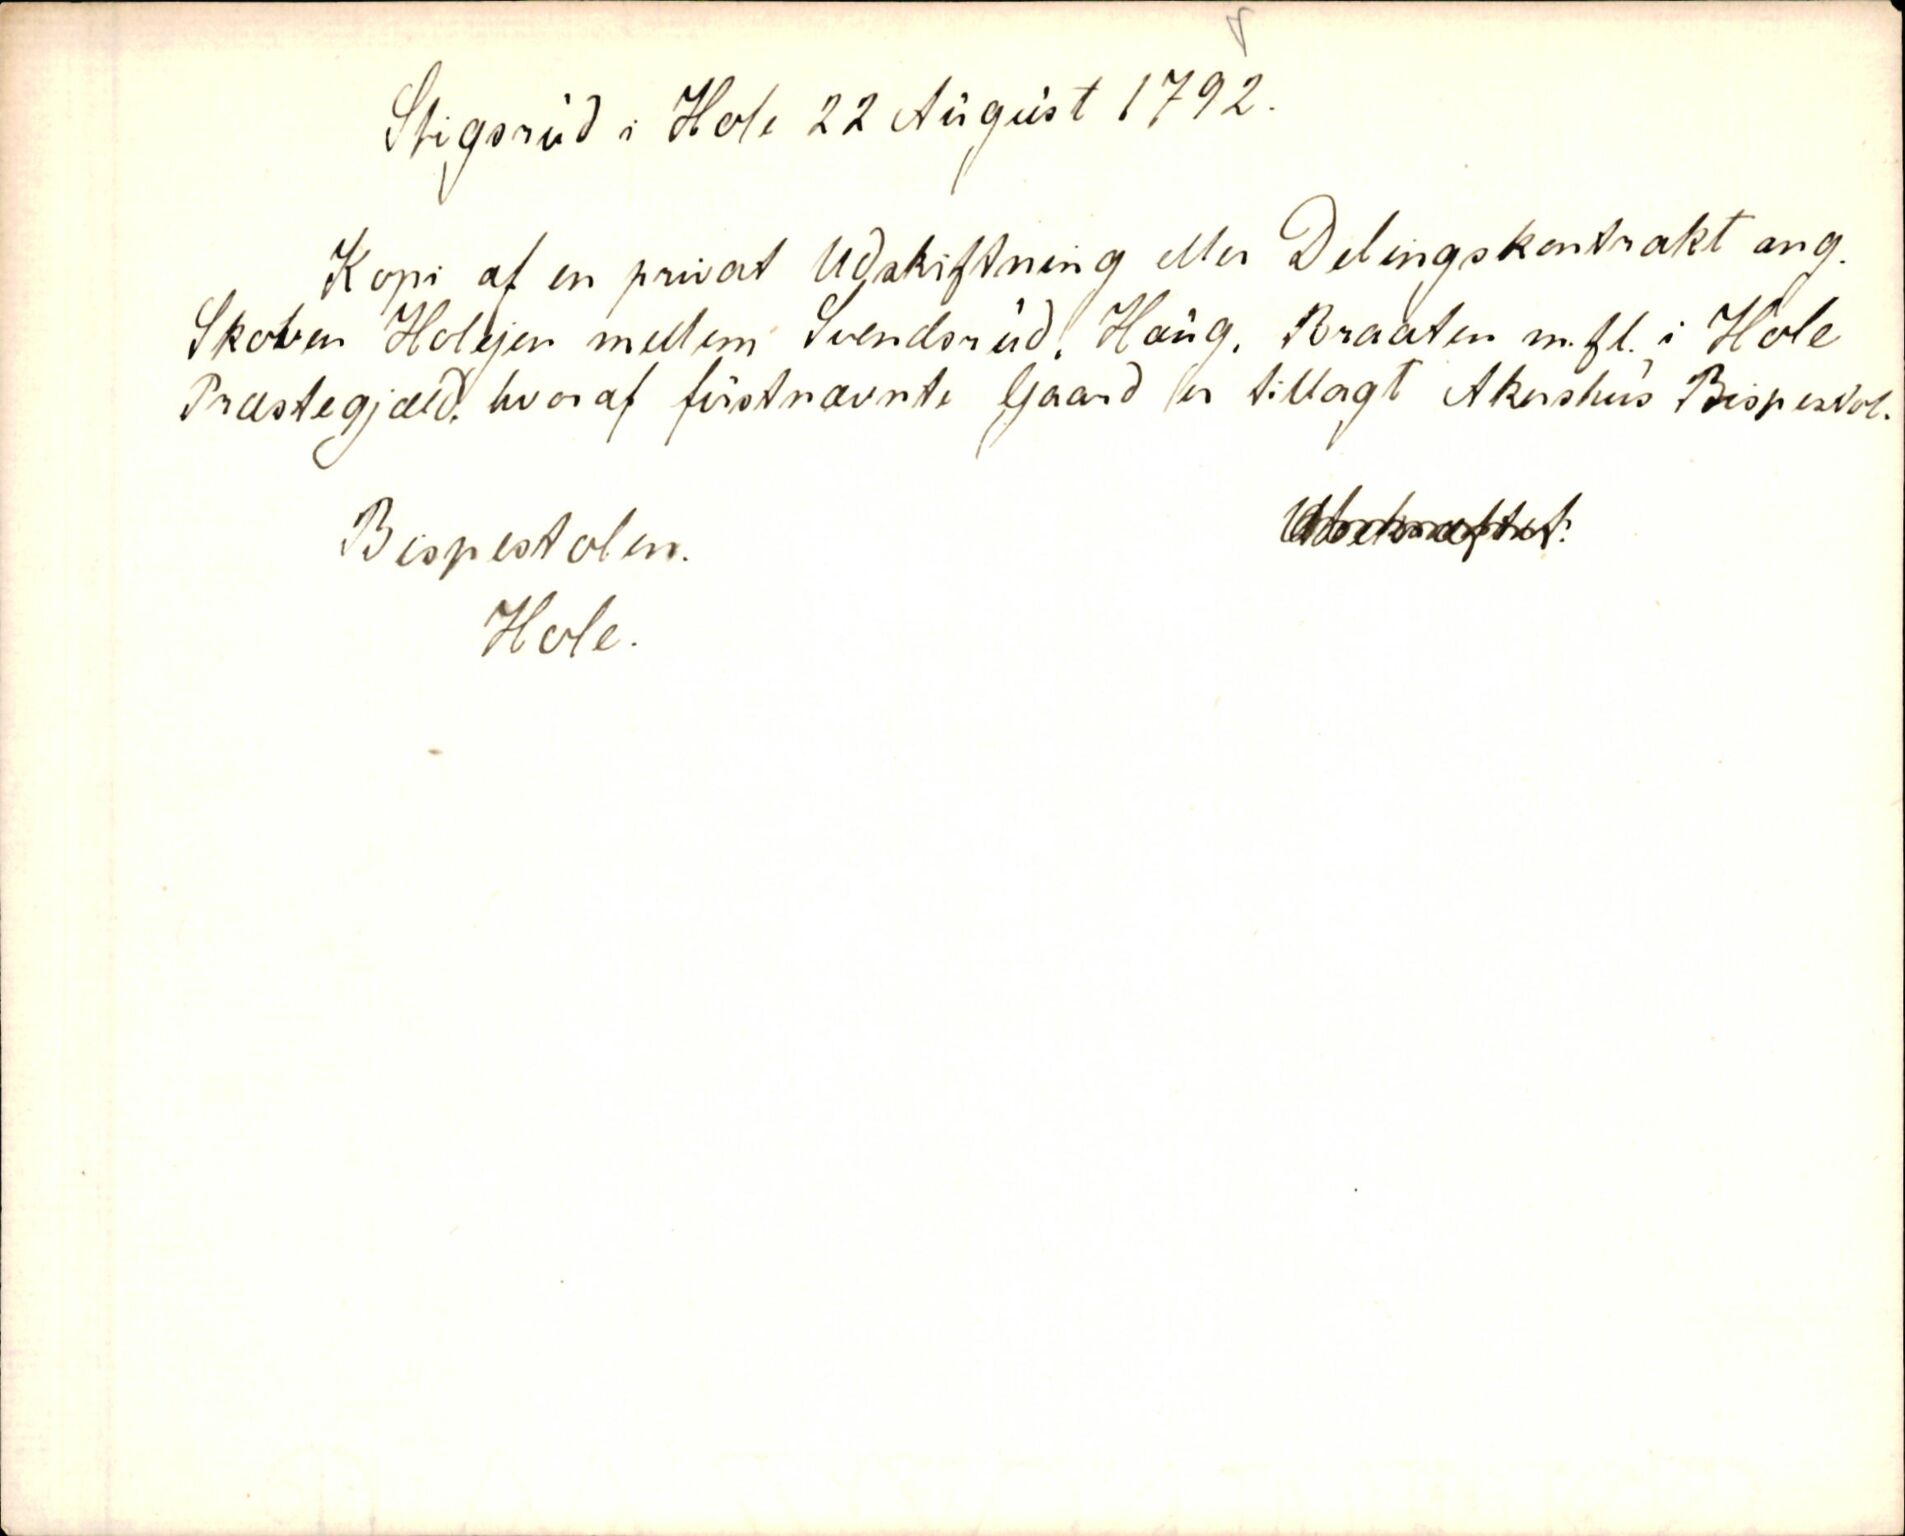 Stigsrud i Hole 22 August 1792.
Kopi af en privat Udskiftning eller Delingskontrakt ang.
Skoven Holejen mellem Svendsrud, Haug, Braaten m. fl. i Hole
Præstegjæld, hvoraf førstnævnte Gaard er tillagt Akershus Bispestol.
Bispestolen.
Hole.